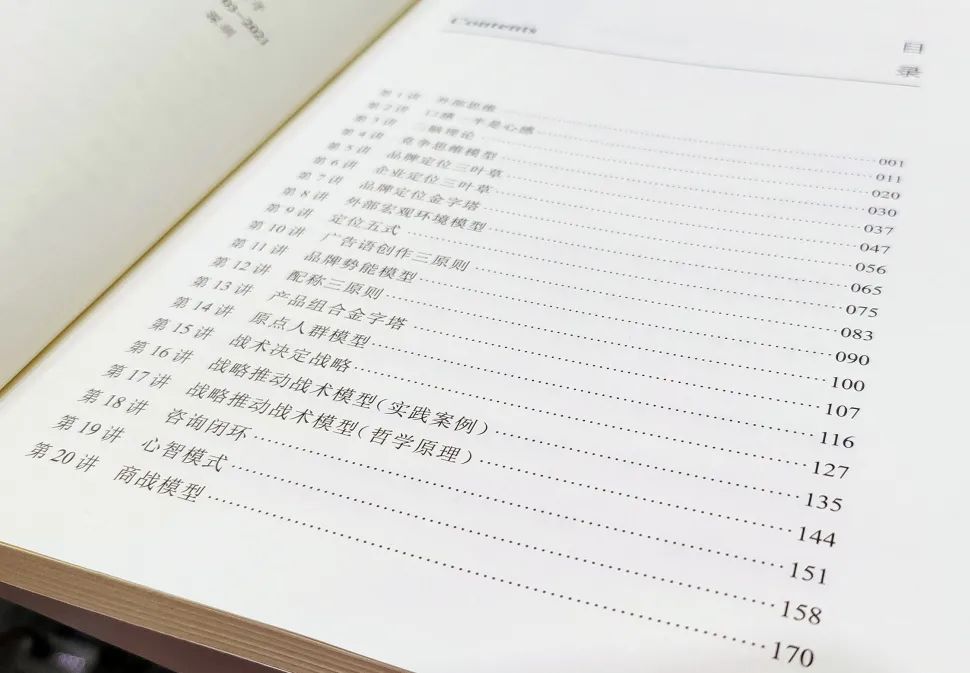 Contents
目
录
第 1 讲 外部思维 001
第 2 讲 口感一半是心感 011
第 3 讲 二脑理论 020
第 4 讲 竞争思维模型 030
第 5 讲 品牌定位三叶草 037
第 6 讲 企业定位三叶草 047
第 7 讲 品牌定位金字塔 056
第 8 讲 外部宏观环境模型 065
第 9 讲 定位五式 075
第 10 讲 广告语创作三原则 083
第 11 讲 品牌势能模型 090
第 12 讲 配称三原则 100
第 13 讲 产品组合金字塔 107
第 14 讲 原点人群模型 116
第 15 讲 战术决定战略 127
第 16 讲 战略推动战术模型(实践案例) 135
第 17 讲 战略推动战术模型(哲学原理) 144
第 18 讲 咨询闭环 151
第 19 讲 心智模式 158
第 20 讲 商战模型 170